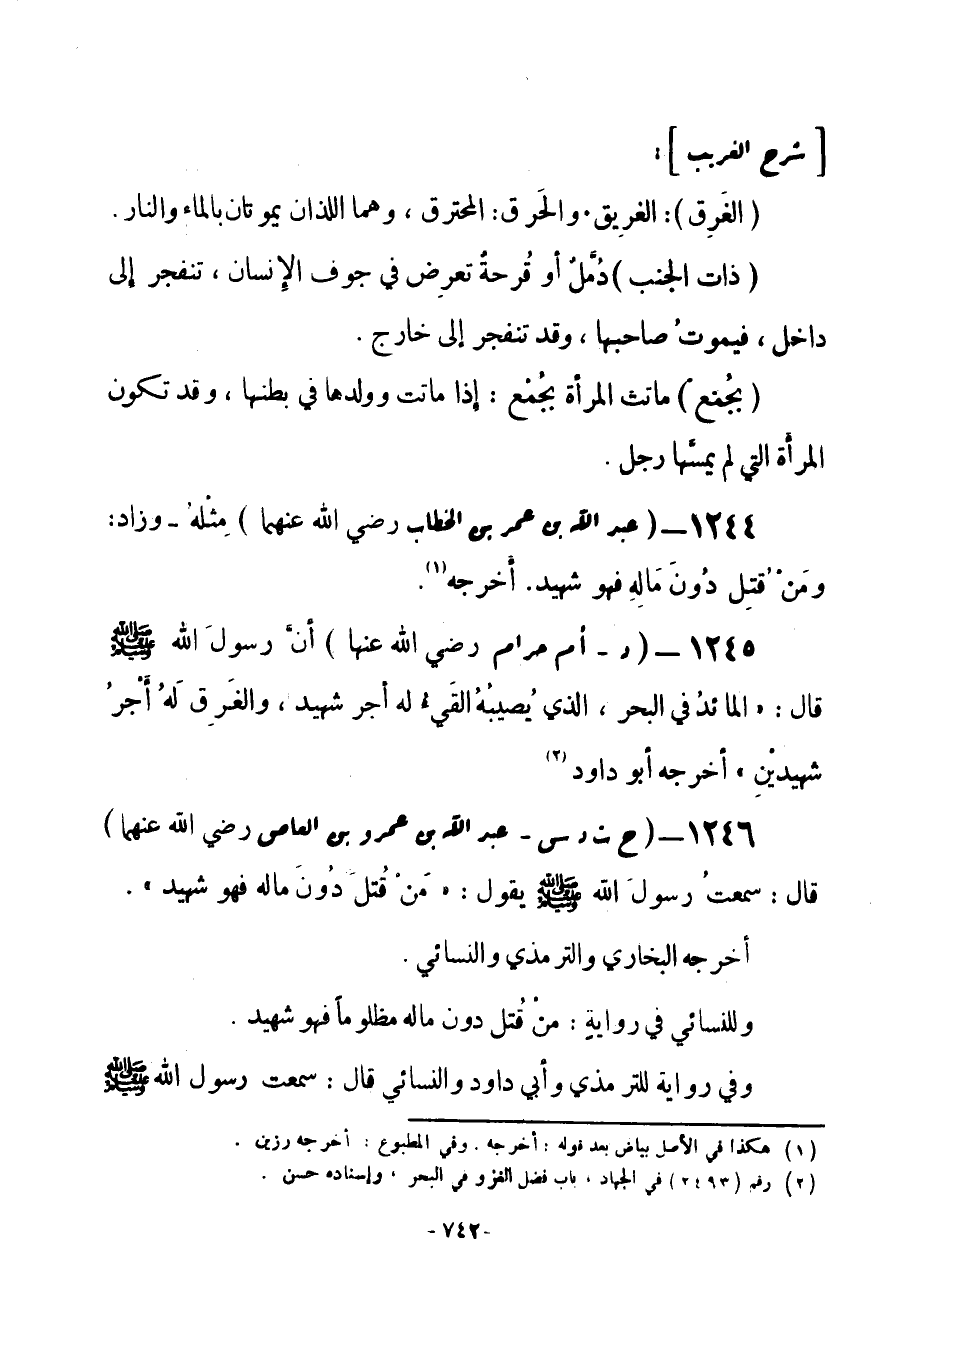 [ شرح الغريب ] :
( الغَرِق ) : الغريق . والحَرِق : المحترق ، وهما اللذان يموتان بالماء والنار .
( ذات الجنب ) دُمَّلٌ أو قُرحةٌ تعرِض في جوف الإنسان ، تنفجر إلى
داخل ، فيموتُ صاحبها ، وقد تنفجر إلى خارج .
( بجُمْعٍ ) ماتت المرأة بجُمْع : إذا ماتت وولدها في بطنها ، وقد تكون
المرأة التي لم يمسَّها رجل .
١٢٤٤ – ( عبد الله بن عمر بن الخطاب رضي الله عنهما ) مِثْلهُ - وزاد :
ومَنْ قُتِل دُونَ مَالِهِ فهو شهيد . أخرجه (١) .
١٢٤٥ – ( د - أم حرام رضي الله عنها ) أنَّ رسولَ الله ﷺ
قال : « المائدُ في البحر ، الذي يُصيبُهُ القَيءُ له أجر شهيد ، والغَرِق لَهُ أَجْرُ
شهيدَيْنِ » أخرجه أبو داود (٢)
١٢٤٦ – ( خ ت د س - عبد الله بن عمرو بن العاص رضي الله عنهما )
قال : سمعتُ رسولَ الله ﷺ يقول : « مَنْ قُتلَ دُونَ ماله فهو شهيد » .
أخرجه البخاري والترمذي والنسائي .
وللنسائي في روايةٍ : منْ قُتل دون ماله مظلوماً فهو شهيد .
وفي رواية للترمذي وأبي داود والنسائي قال : سمعت رسول الله ﷺ
(١) هكذا في الأصل بياض بعد قوله : أخرجه . وفي المطبوع : أخرجه رزين .
(٢) رقم (٢٤٩٣) في الجهاد ، باب فضل الغزو في البحر ، وإسناده حسن .
- ٧٤٢ -